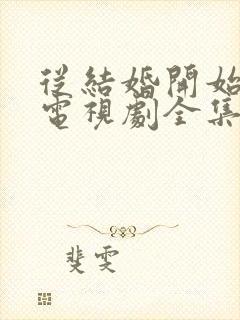 從結婚開始
電視劇全集
斐雯